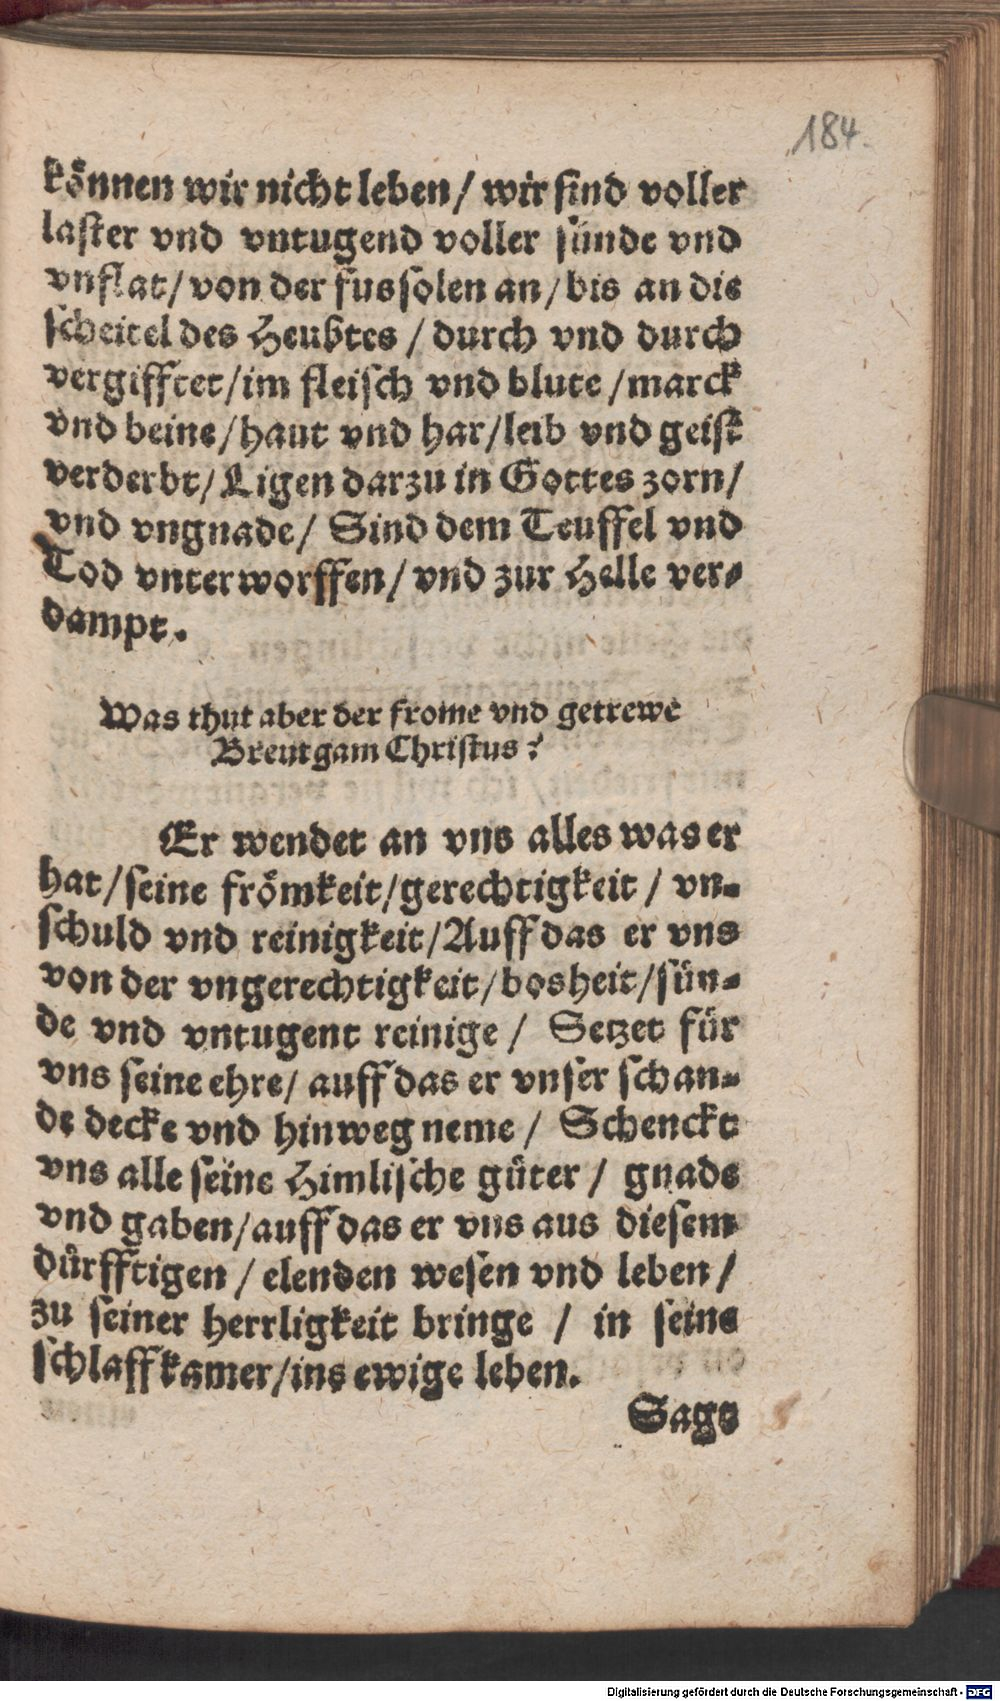 184.
können wir nicht leben / wir sind voller
laster vnd vntugend voller sünde vnd
vnflat / von der fussolen an / bis an die
scheitel des Heubtes / durch vnd durch
vergifftet / im fleisch vnd blute / marck
vnd beine / haut vnd har / leib vnd geist
verderbt / Ligen darzu in Gottes zorn /
vnd vngnade / Sind dem Teuffel vnd
Tod vnterworffen / vnd zur Helle ver-
dampt.
Was thut aber der frome vnd getrewe
Breutgam Christus?
Er wendet an vns alles was er
hat / seine frömkeit / gerechtigkeit / vn-
schuld vnd reinigkeit / Auff das er vns
von der vngerechtigkeit / bosheit / sün-
de vnd vntugent reinige / Setzet für
vns seine ehre / auff das er vnser schan-
de decke vnd hinweg neme / Schenckt
vns alle seine Himlische güter / gnade
vnd gaben / auff das er vns aus diesem
dürfftigen / elenden wesen vnd leben /
zu seiner herrligkeit bringe / in seine
schlaffkamer / ins ewige leben.
Sagt
Digitalisierung gefördert durch die Deutsche Forschungsgemeinschaft - DFG